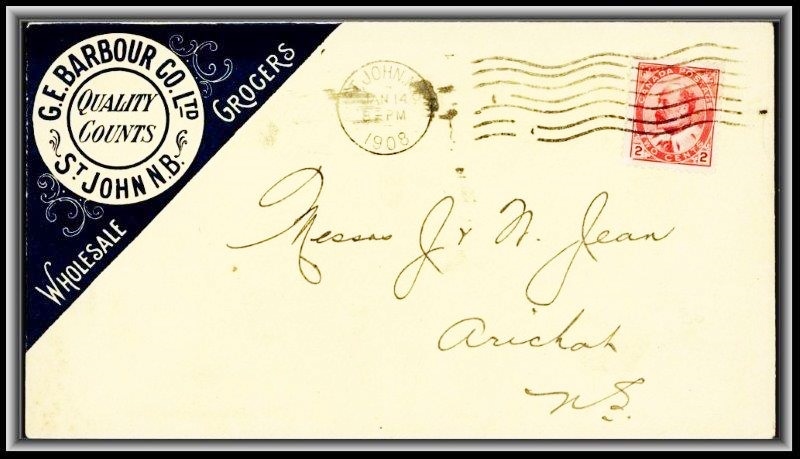 G.E. BARBOUR CO. LTD
QUALITY
COUNTS
ST JOHN N.B.
WHOLESALE GROCERS
ST JOHN, N.B.
JAN 14
PM
1908
CANADA POSTAGE
2 TWO CENTS 2
Messrs J & N. Jean
Arichat
N.S.